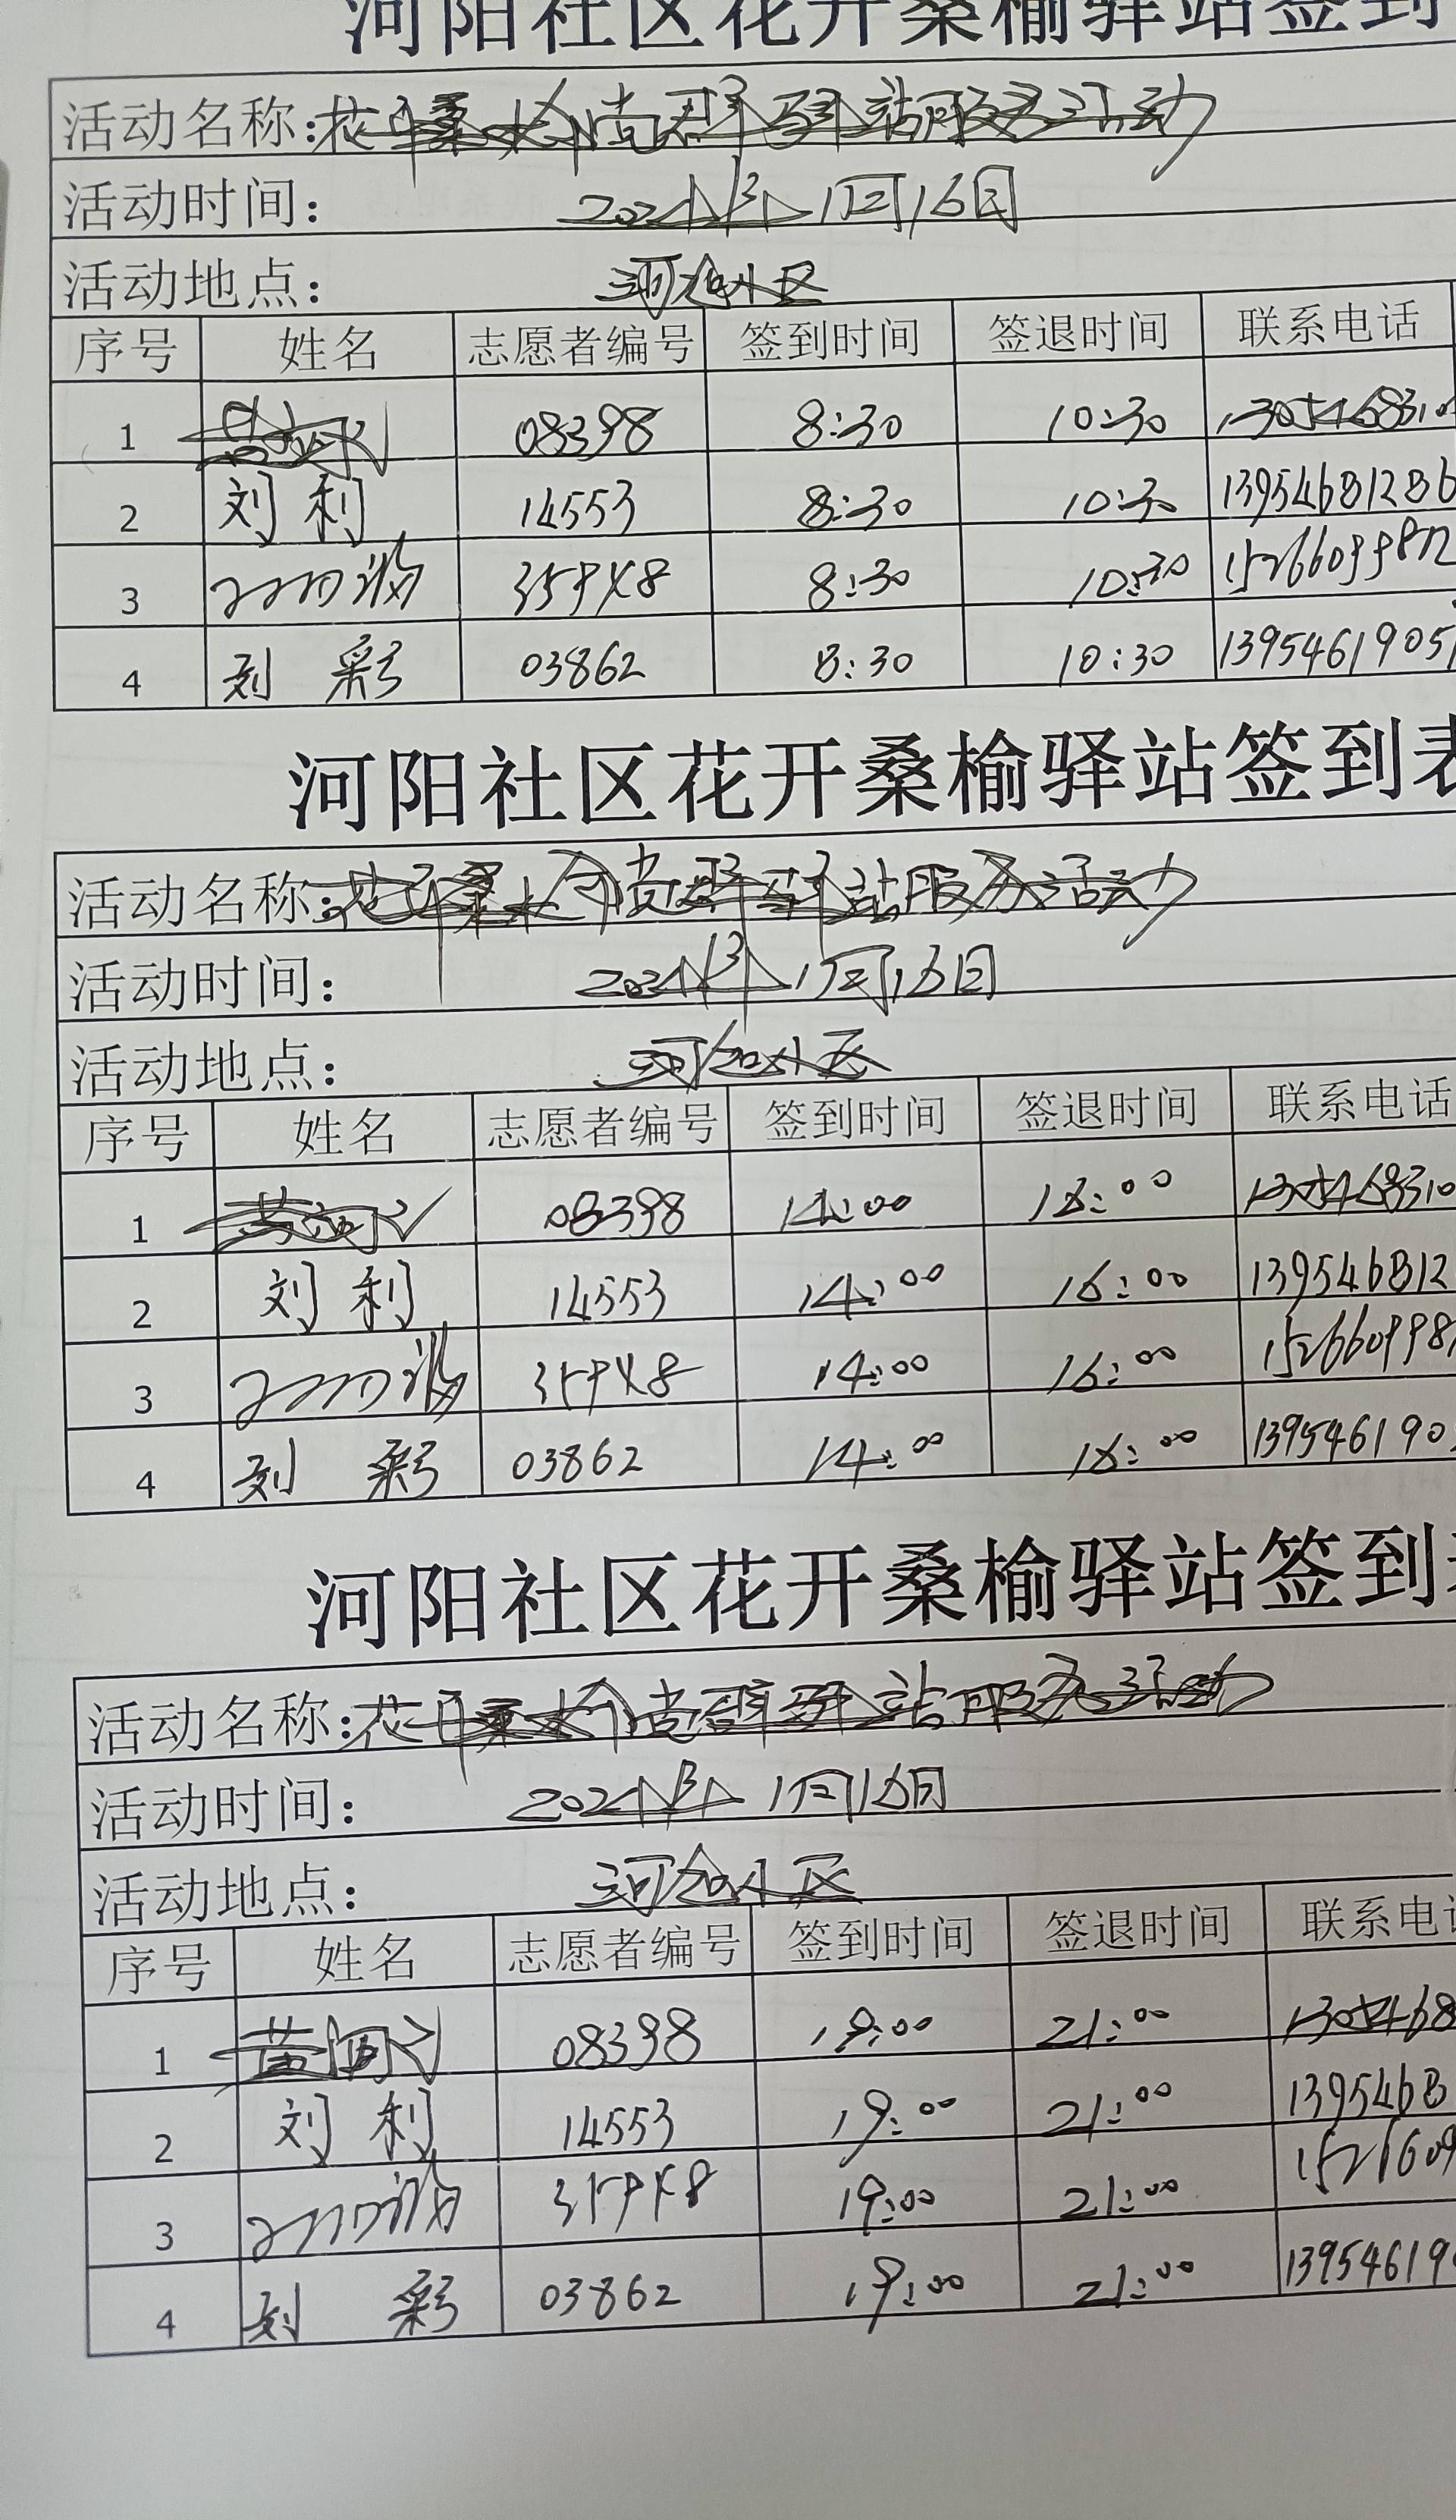 河阳社区花开桑榆驿站签到
活动名称:花开桑榆尚群驿站服务活动
活动时间: 2024年1月16日
活动地点: 河阳小区
序号 姓名 志愿者编号 签到时间 签退时间 联系电话
1 08398 8:30 10:30 1305468310
2 刘利 14553 8:30 10:30 13954681286
3 8:30 10:30
4 刘彩 03862 8:30 10:30 1395461905
河阳社区花开桑榆驿站签到表
活动名称:花开桑榆尚群驿站服务活动
活动时间: 2024年1月16日
活动地点: 河阳小区
序号 姓名 志愿者编号 签到时间 签退时间 联系电话
1 08398 14:00 16:00 1305468310
2 刘利 14553 14:00 16:00 139546812
3 14:00 16:00
4 刘彩 03862 14:00 16:00 139546190
河阳社区花开桑榆驿站签到
活动名称:花开桑榆尚群驿站服务活动
活动时间: 2024年1月16日
活动地点: 河阳小区
序号 姓名 志愿者编号 签到时间 签退时间 联系电话
1 08398 19:00 21:00 1305468
2 刘利 14553 19:00 21:00 1395468
3 19:00 21:00
4 刘彩 03862 19:00 21:00 13954619